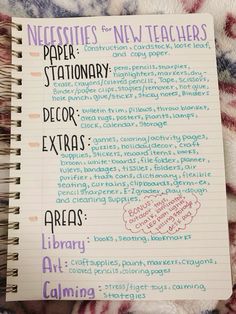 NECESSITIES for NEW TEACHERS
PAPER: Construction, cardstock, loose leaf,
and copy paper.
STATIONARY: pens, pencils, sharpies,
highlighters, markers, dry-
erase, crayons/colored pencils, Tape, scissors,
Binder/paper clips, staples/remover, hot glue,
hole punch, glue/sticks, sticky notes, Binders
DECOR: bulletin trim, pillows, throw blanket,
area rugs, posters, plants, lamps,
clock, calendar, storage
EXTRAS: games, coloring/activity pages,
puzzles, holiday decor, craft
supplies, stickers, reward items, books,
broom, white-boards, file folder, planner,
rulers, bandages, tissues, folders, air
purifier, task cans, dictionary, flexible
seating, curtains, clipboards, germ-ex,
pencil sharpener, E-Z graders, playdough
and cleaning supplies.
AREAS:
BONUS:
LED
storage
Library: books, seating, bookmarks
Art: craft supplies, paint, markers, crayons,
colored pencils, coloring pages
Calming: stress/fidget toys, calming
strategies